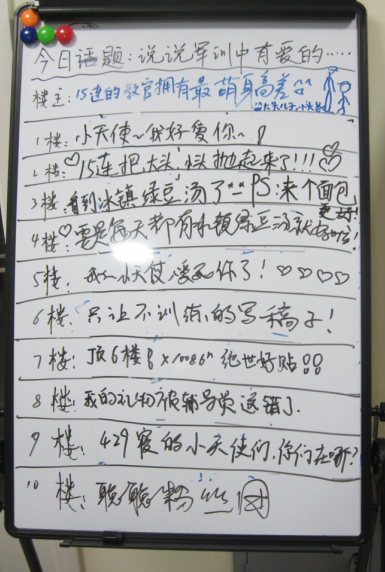 今日话题:说说军训中有爱的……
楼主:15连的教官拥有最萌身高差
1楼:小天使~我好爱你~
2楼:♡15连把大头,小头抛起来了!!!
3楼:看到冰镇绿豆汤了 PS:来个面包更好!
4楼:♡要是每天都有冰镇绿豆汤就好了!
5楼:我们小天使爱死你了!♡♡♡♡
6楼:只让不训练的写稿子!
7楼:顶6楼 x10086ⁿ 绝世好贴!!
8楼:我的礼物被辅导员送错了.
9楼:429寝的小天使们,你们在哪?
10楼:聪聪粉丝团